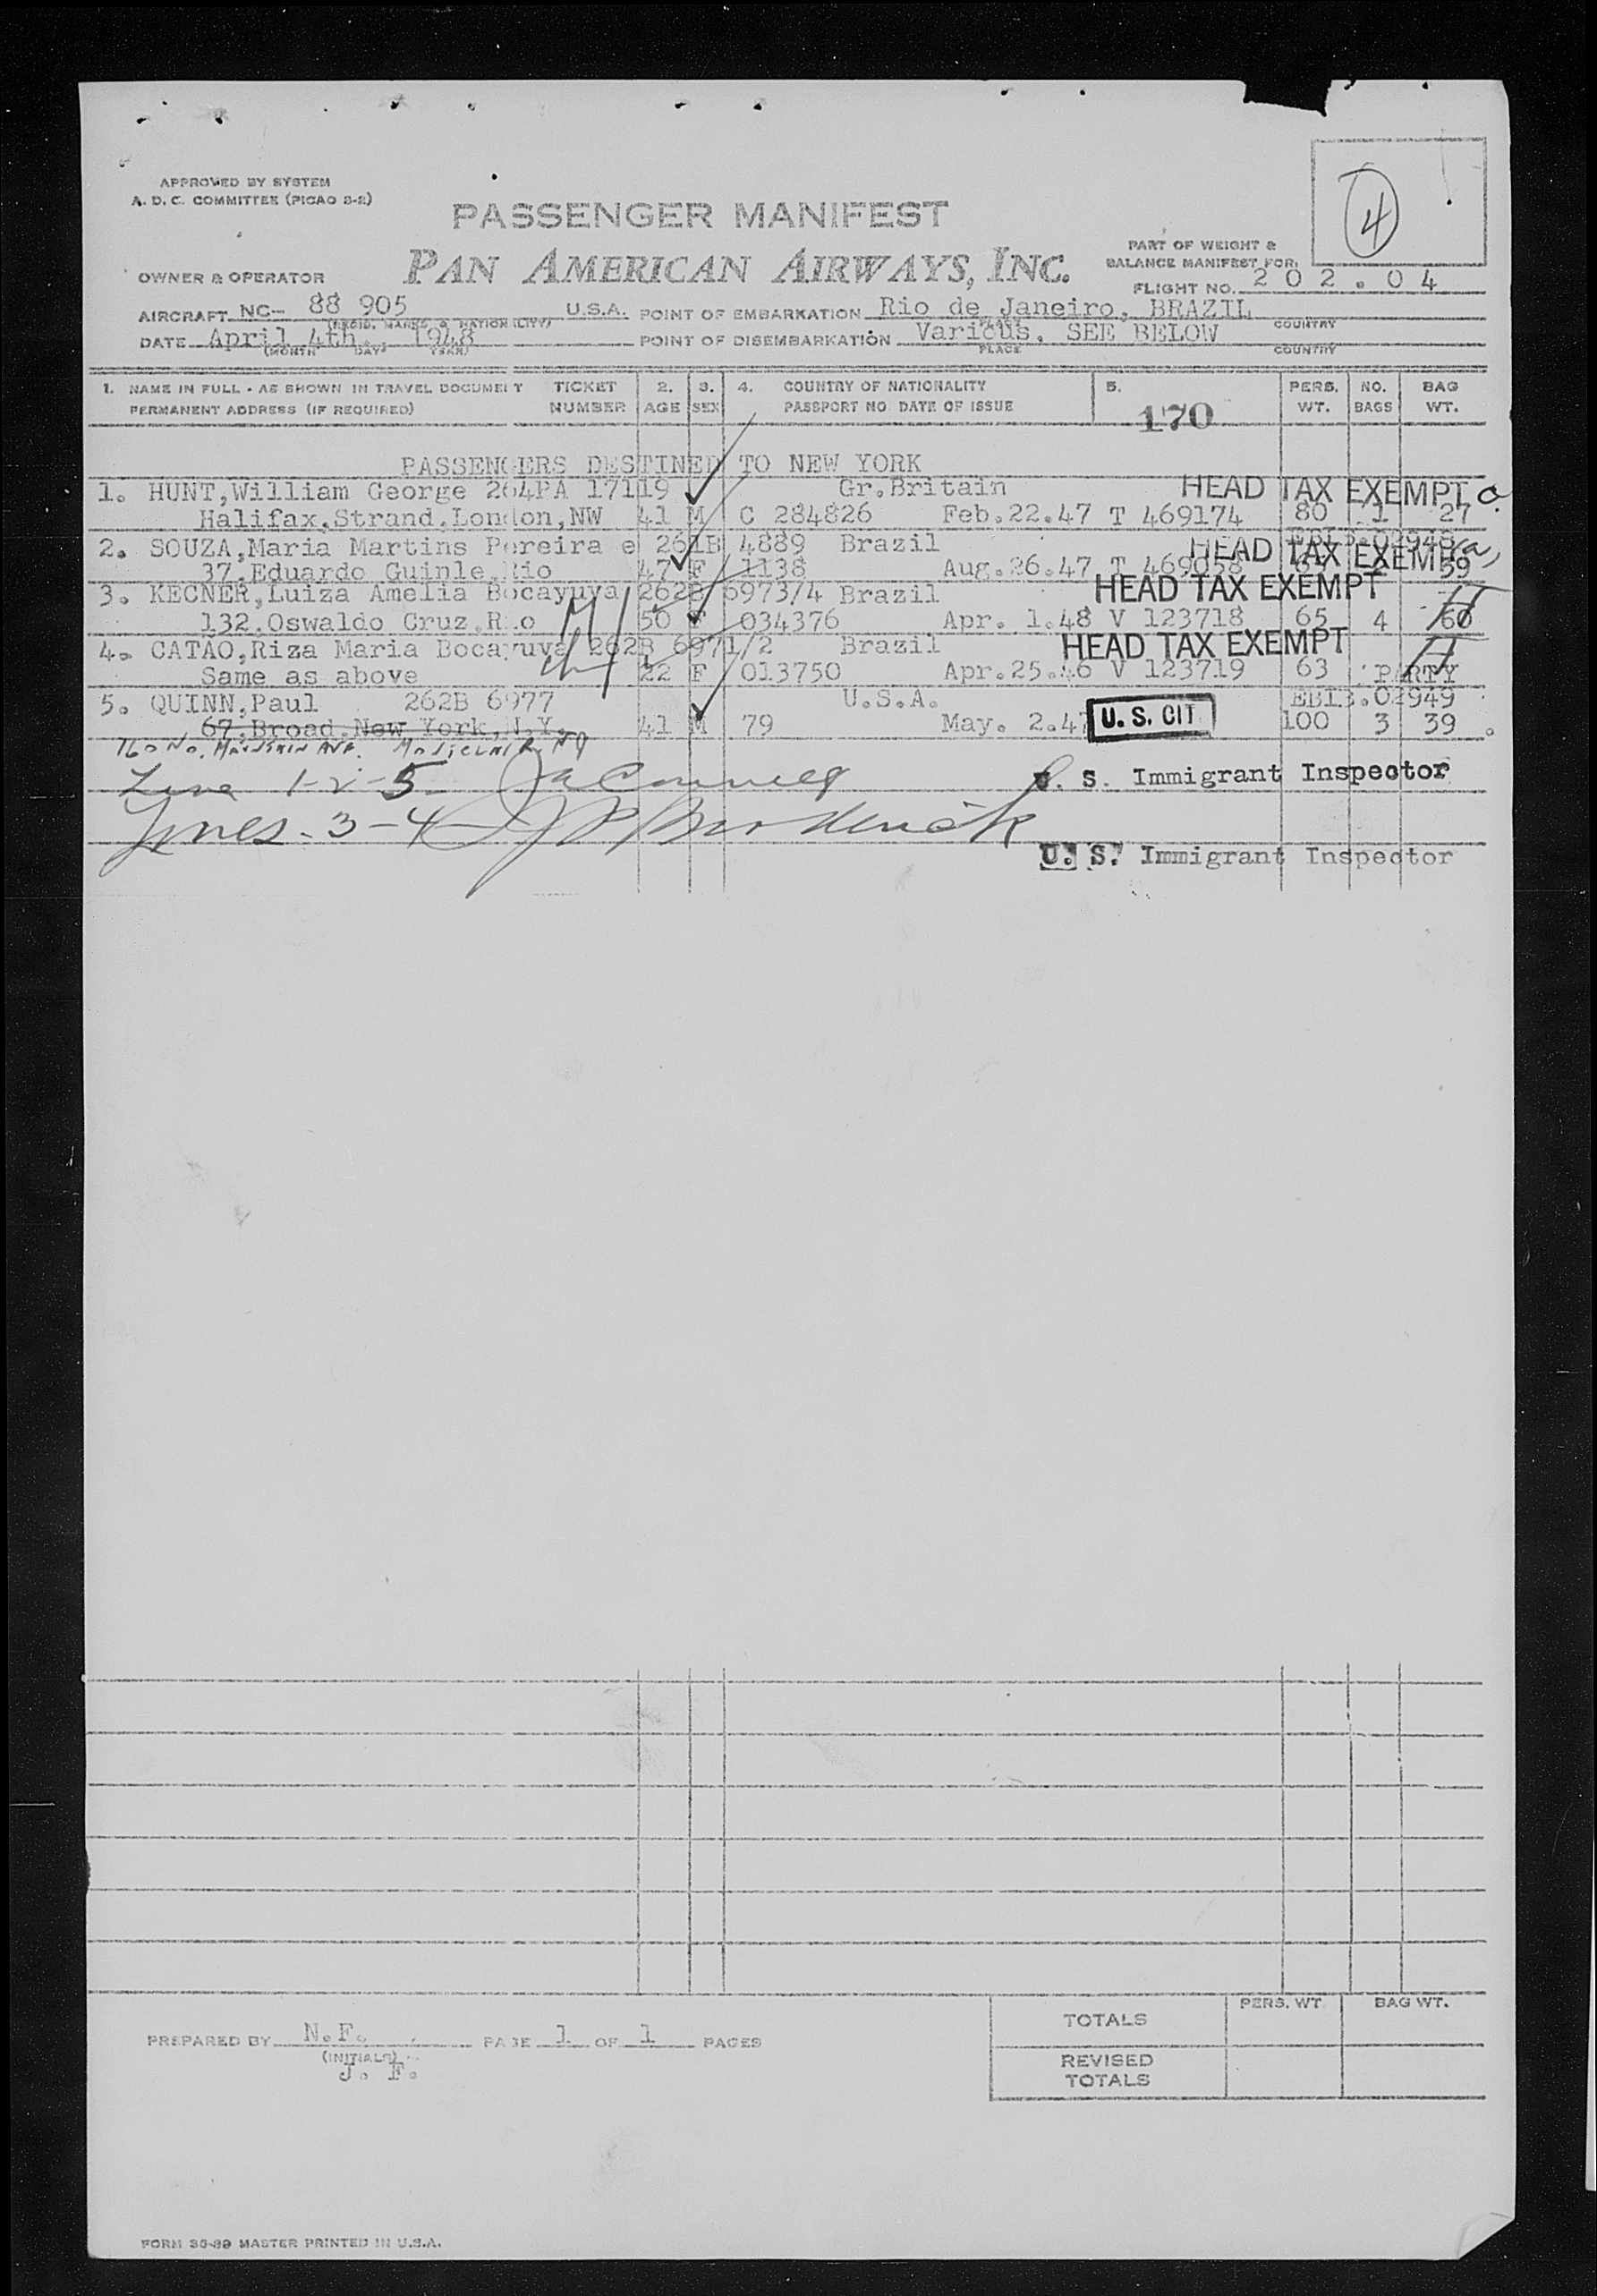 4
APPROVED BY SYSTEM
A. D. C. COMMITTEE (PICAO 3-2)
PASSENGER MANIFEST
PART OF WEIGHT &
BALANCE MANIFEST FOR:
OWNER & OPERATOR
PAN AMERICAN AIRWAYS, INC.
FLIGHT NO. 202.04
AIRCRAFT NC- 88 905 U.S.A. POINT OF EMBARKATION Rio de Janeiro, BRAZIL
(REGIS. MARKS & NATIONALITY) PLACE COUNTRY
DATE April 4th. 1948 POINT OF DISEMBARKATION Various. SEE BELOW
(MONTH DAY YEAR) PLACE COUNTRY
1. NAME IN FULL - AS SHOWN IN TRAVEL DOCUMENT TICKET 2. 3. 4. COUNTRY OF NATIONALITY 5. PERS. NO. BAG
PERMANENT ADDRESS (IF REQUIRED) NUMBER AGE SEX PASSPORT NO DATE OF ISSUE WT. BAGS WT.
170
PASSENGERS DESTINED TO NEW YORK
1. HUNT,William George 264PA 17119 Gr.Britain HEAD TAX EXEMPT
Halifax,Strand,London,NW 41 M C 284826 Feb.22.47 T 469174 80 1 27
EBIB.02948
2. SOUZA,Maria Martins Pereira e 261B 4889 Brazil HEAD TAX EXEMPT
37,Eduardo Guinle,Rio 47 F 1138 Aug.26.47 T 469058 59
3. KECNER,Luiza Amelia Bocayuva 262B 6973/4 Brazil HEAD TAX EXEMPT
132,Oswaldo Cruz,Rio 50 F 034376 Apr. 1.48 V 123718 65 4 60
4. CATAO,Riza Maria Bocayuva 262B 6971/2 Brazil HEAD TAX EXEMPT
Same as above 22 F 013750 Apr.25.46 V 123719 63 PARTY
5. QUINN,Paul 262B 6977 U.S.A. EBIB.02949
67,Broad,New York,N.Y. 41 M 79 May. 2.47 U. S. CIT 100 3 39
160 No. Mountain Ave. Montclair NJ
Line 1-2-5
U. S. Immigrant Inspector
Lines - 3-4 Broderick
U. S. Immigrant Inspector
PREPARED BY N.F. PAGE 1 OF 1 PAGES
(INITIALS)
J. F.
PERS. WT BAG WT.
TOTALS
REVISED
TOTALS
FORM 36-39 MASTER PRINTED IN U.S.A.